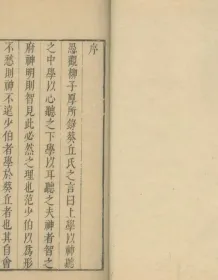 序
愚觀柳子厚所錄葵丘氏之言曰上學以神聽
之中學以心聽之下學以耳聽之夫神者智之
府神明則智見此必然之理也范少伯以為形
不愁則神不遠少伯者學於葵丘者也其自會